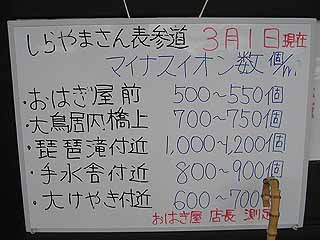 しらやまさん表参道 3月1日現在
マイナスイオン数 個/㎥
・おはぎ屋前 500〜550個
・大鳥居内橋上 700〜750個
・琵琶滝付近 1,000〜1,200個
・手水舎付近 800〜900個
・大けやき付近 600〜700
おはぎ屋 店長 測定